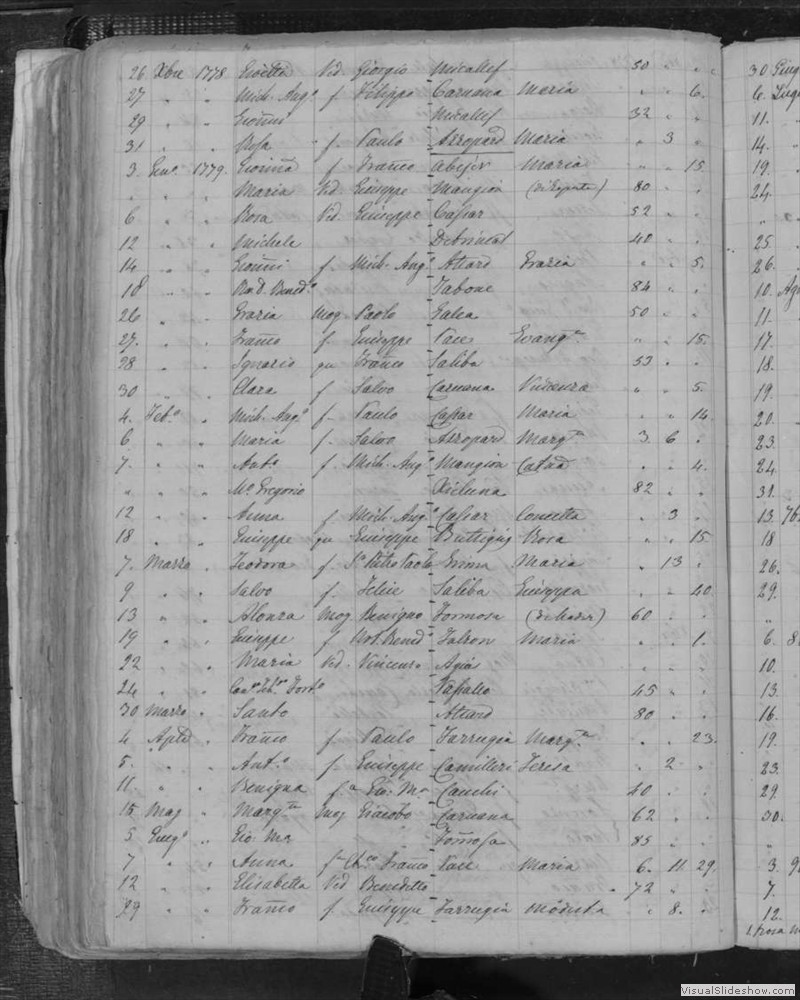 26 Xbre 1778 Vid Giorgio Micallef 50 " "
27 " " Mich. Ang.o f Filippo Caruana Maria " " 6.
29 " " Gionni Micallef 32 " "
31 " " Rosa f Paulo Azzopard Maria " 3 "
3 Gen.o 1779. f Franco Abejer Maria " " 15
" " " Maria Vid Giuseppe Mangion 80 " "
6 " " Rosa Vid Giuseppe Cassar 52 " "
12 " " Michele Debrincat 40 " "
14 " " Gionni f Mich. Ang.o Attard Grazia " " 5.
18 " " Rev.d. Bened.o Tabone 84 " "
26 " " Grazia Mog Paolo Galea 50 " "
27. " " Franco f Giuseppe Pace Evang.ta " " 15.
28 " " Ignazio qu Franco Saliba 53 " "
30 " " Clara f Salvo Caruana Vicenza " " 5.
4. Feb.o " Mich. Ang.o f Paulo Cassar Maria " " 14.
6 " " Maria f Salvo Azzopard Marg.ta 3 6 "
7. " " Ant.o f Mich. Ang.o Mangion Catad " " 4.
" " " M.o Gregorio Xicluna 82 " "
12 " " Anna f Mich. Ang.o Cassar Concetta " 3 "
18 " " Giuseppe qu Giuseppe Buttigieg Rosa " " 15
7. Marzo " Teodora f Sr Pietro Paolo Maria " 13 "
9 " " Salvo f Felice Saliba Giuseppa " " 40
13 " " Alonza Mog Benigno Formosa 60 " "
19 " " Giuseppe f Not. Bened.o Falzon Maria " " 1.
22 " " Maria Vid Vincenzo Agius " " "
24 " " Vassallo 45 " "
30 Marzo " Santo Attard 80 " "
4 Aple " Franco f Paulo Farrugia Marg.ta " " 23.
5. " " Ant.o f Giuseppe Camilleri Teresa " 2 "
11. " " Benigna f.a Gio. Ma Cauchi 40 " "
15 Mag " Marg.ta Mog Giacobo Caruana 62 " "
5 Giug.o " Gio. Ma Formosa 85 " "
7 " " Anna f Franco Pace Maria 6. 11. 29.
12 " " Elisabetta Vid Benedetto 72 " "
29 " " Franco f Giuseppe Farrugia Modesta " 8. "
30 Giug
6. Lug
11. "
14. "
19. "
24. "
"
25. "
26. "
10. Ago
11. "
17. "
18.
19.
20.
23.
24.
31.
13 76
18
26.
29.
"
6. 8
10.
13.
16.
19.
23.
29.
30.
3. 9
7.
12.
VisualSlideshow.com